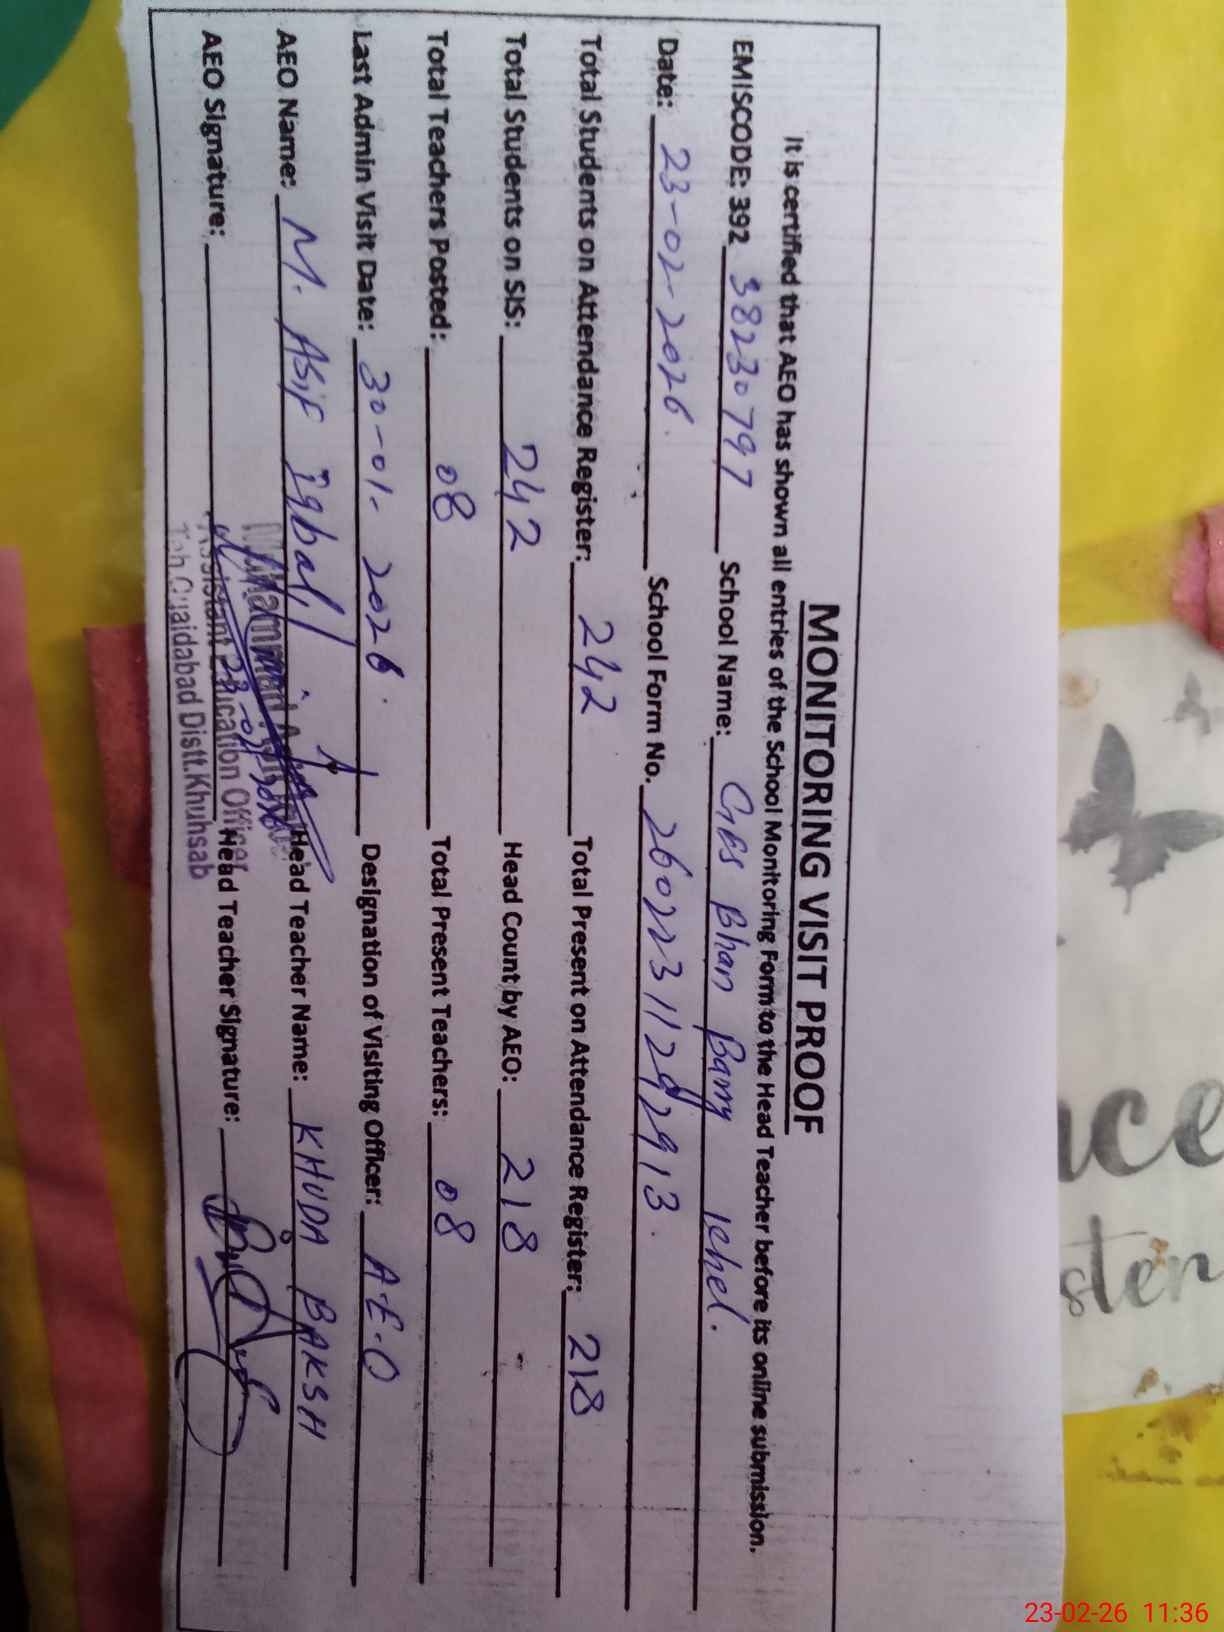 MONITORING VISIT PROOF
It is certified that AEO has shown all entries of the School Monitoring Form to the Head Teacher before its online submission.
EMISCODE: 392 38230797 School Name: GES Bhan Barry
Date: 23-02-2026. School Form No. 26022311292913.
Total Students on Attendance Register: 242 Total Present on Attendance Register: 218
Total Students on SIS: 242 Head Count by AEO: 218
Total Teachers Posted: 08 Total Present Teachers: 08
Last Admin Visit Date: 30-01-2026. Designation of Visiting Officer: A-E-O
AEO Name: M. Asif Iqbal Head Teacher Name: KHUDA BAKSH
AEO Signature: Head Teacher Signature:
Assistant Education Officer
Teh.Quaidabad Distt.Khuhsab
ce
ster
23-02-26 11:36